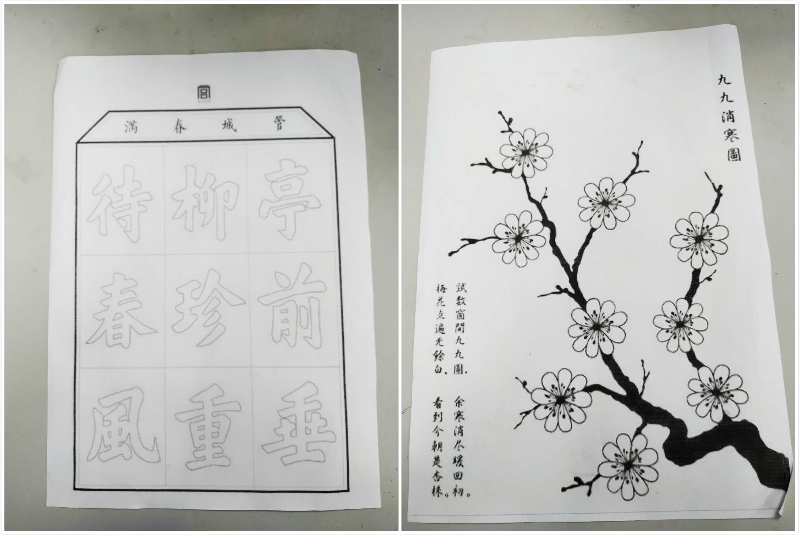 管城春滿
亭前垂
柳珍重
待春風
九九消寒圖
試數窗間九九圖，余寒消尽暖回初。
梅花点遍无餘白，看到今朝是杏株。